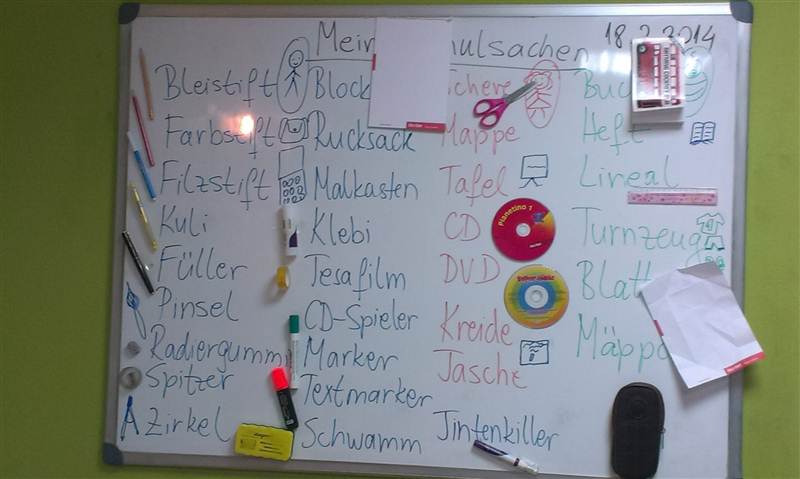 Mein ulsachen 18.2.2014
Bleistift
Farbstift
Filzstift
Kuli
Füller
Pinsel
Radiergummi
Spitzer
Zirkel
Block
Rucksack
Malkasten
Klebi
Tesafilm
CD-Spieler
Marker
Textmarker
Schwamm
chere
Mappe
Tafel
CD
Planetino 1
DVD
Kreide
Tasche
Tintenkiller
Buc
Heft
Lineal
Turnzeug
Blatt
Mäppc